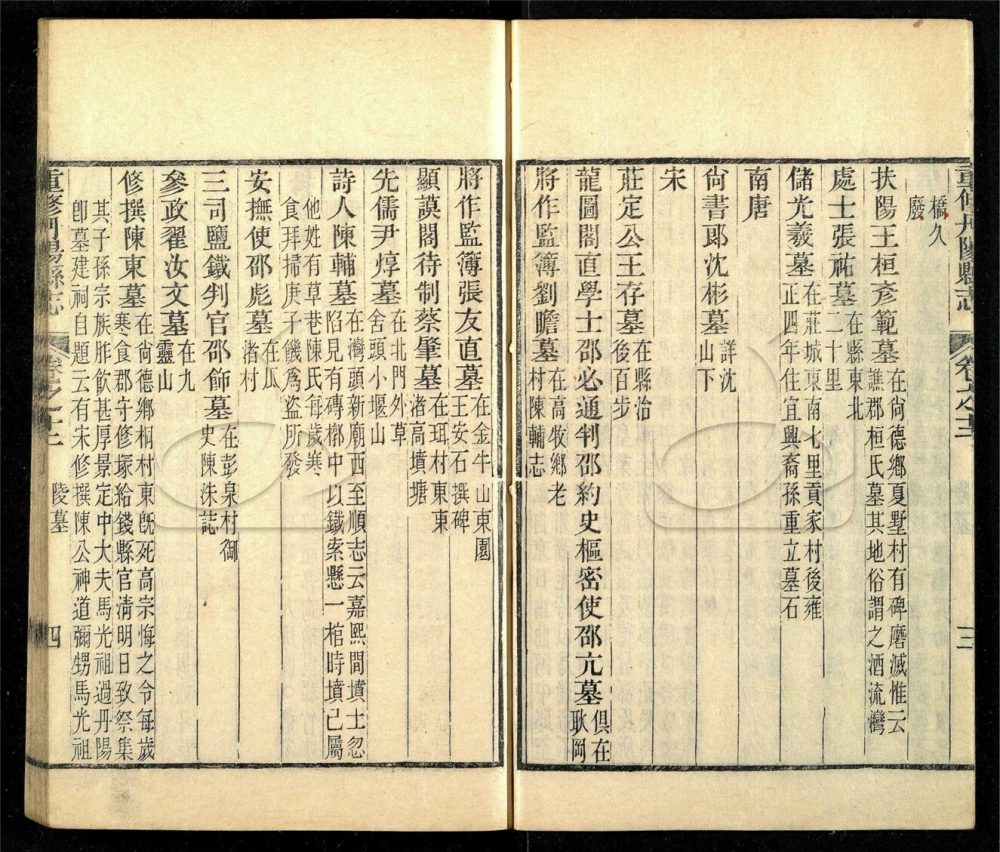 重修丹陽縣志 卷之十二 三
橋久
廢
扶陽王桓彥範墓在尚德鄉夏墅村有碑磨滅惟云
譙郡桓氏墓其地俗謂之酒流灣
處士張祐墓在縣東北
二十里
儲光羲墓在莊城東南七里貢家村後雍
正四年住宜興裔孫重立墓石
南唐
尚書郎沈彬墓詳沈
山下
宋
莊定公王存墓在縣治
後百步
龍圖閣直學士邵必通判邵約史樞密使邵亢墓俱在
耿岡
將作監簿劉瞻墓在高牧鄉老
村陳輔志
將作監簿張友直墓在金牛山東園
王安石撰碑
顯謨閣待制蔡肇墓在珥村東
渚高墳塘
先儒尹焞墓在北門外草
舍頭小堰山
詩人陳輔墓在灣頭新廟西至順志云嘉熙間墳土忽
陷見有磚槨中以鐵索懸一棺時墳已屬
他姓有草巷陳氏每歲寒
食拜掃庚子饑為盜所發
安撫使邵彪墓在瓜
渚村
三司鹽鐵判官邵飾墓在彭泉村御
史陳洙誌
參政翟汝文墓在九
靈山
修撰陳東墓在尚德鄉桐村東既死高宗悔之令每歲
寒食郡守修塚給錢縣官清明日致祭集
其子孫宗族胙飲甚厚景定中大夫馬光祖過丹陽
卽墓建祠自題云有宋修撰陳公神道彌甥馬光祖
重修丹陽縣志 卷之十二 陵墓 四